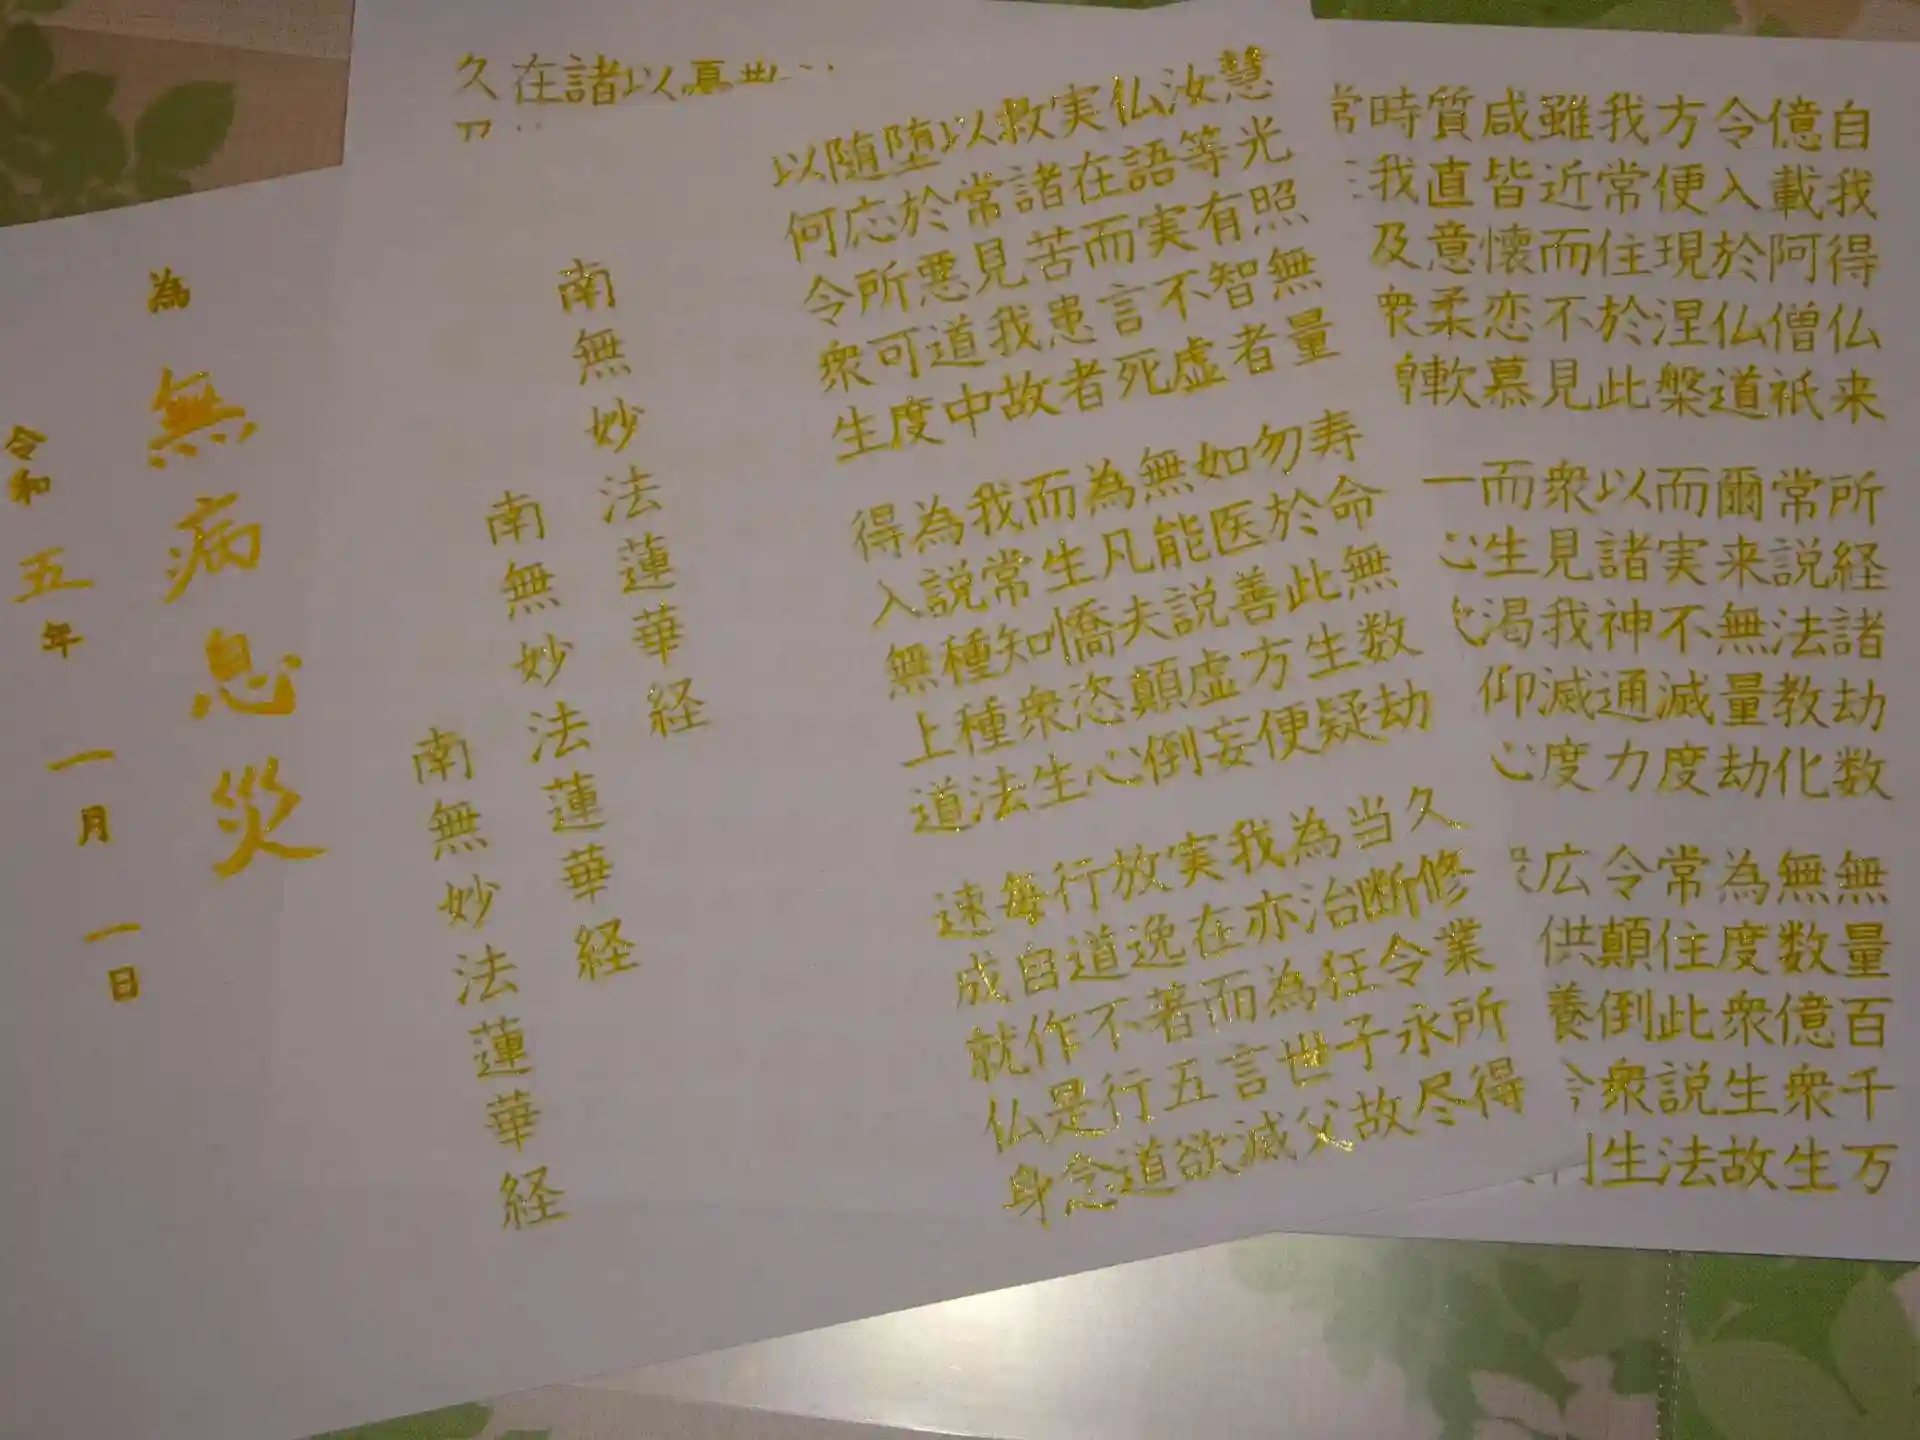 自我得仏来 所経諸劫数 無量百千万
億載阿僧祇 常説法教化 無数億衆生
令入於仏道 爾来無量劫 為度衆生故
方便現涅槃 而実不滅度 常住此説法
我常住於此 以諸神通力 令顛倒衆生
雖近而不見 衆見我滅度 広供養
咸皆懐恋慕 而生渇仰心
質直意柔軟 一心
時我及衆
常
慧光照無量 寿命無数劫 久修業所得
汝等有智者 勿於此生疑 当断令永尽
仏語実不虚 如医善方便 為治狂子故
実在而言死 無能説虚妄 我亦為世父
救諸苦患者 為凡夫顛倒 実在而言滅
以常見我故 而生憍恣心 放逸著五欲
堕於悪道中 我常知衆生 行道不行道
随応所可度 為説種種法 毎自作是念
以何令衆生 得入無上道 速成就仏身
以
諸
在
久
南無妙法蓮華経
南無妙法蓮華経
南無妙法蓮華経
為 無病息災
令和五年 一月 一日